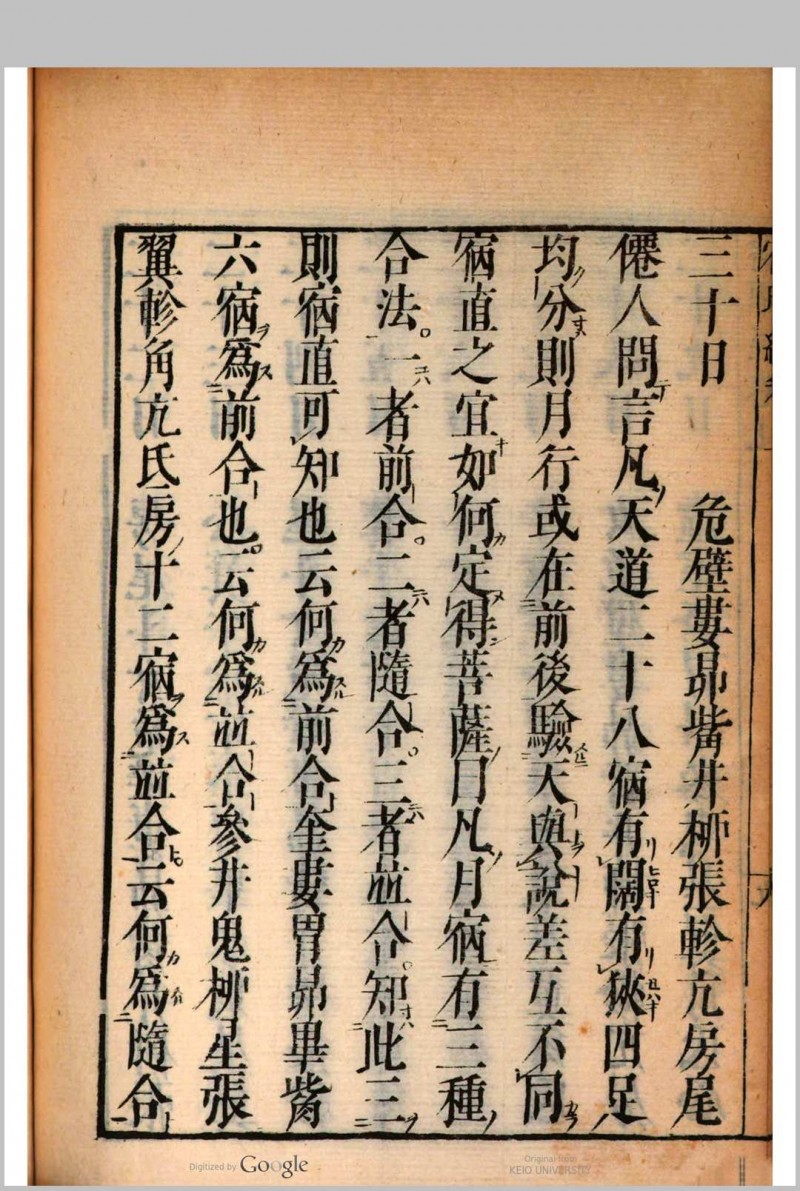 三十日　危壁婁昴觜井桺張軫亢房尾
僊人問言凡天道二十八宿有闊有狹四足
均分則月行或在前後驗天與說差互不同
宿直之宜如何定得菩薩曰凡月宿有三種
合法一者前合二者隨合三者並合知此三
則宿直可知也云何爲前合奎婁胃昴畢觜
六宿爲前合也云何爲並合參井鬼桺星張
翼軫角亢氐房十二宿爲並合云何爲隨合
Digitized by Google
Original from
KEIO UNIVERSITY